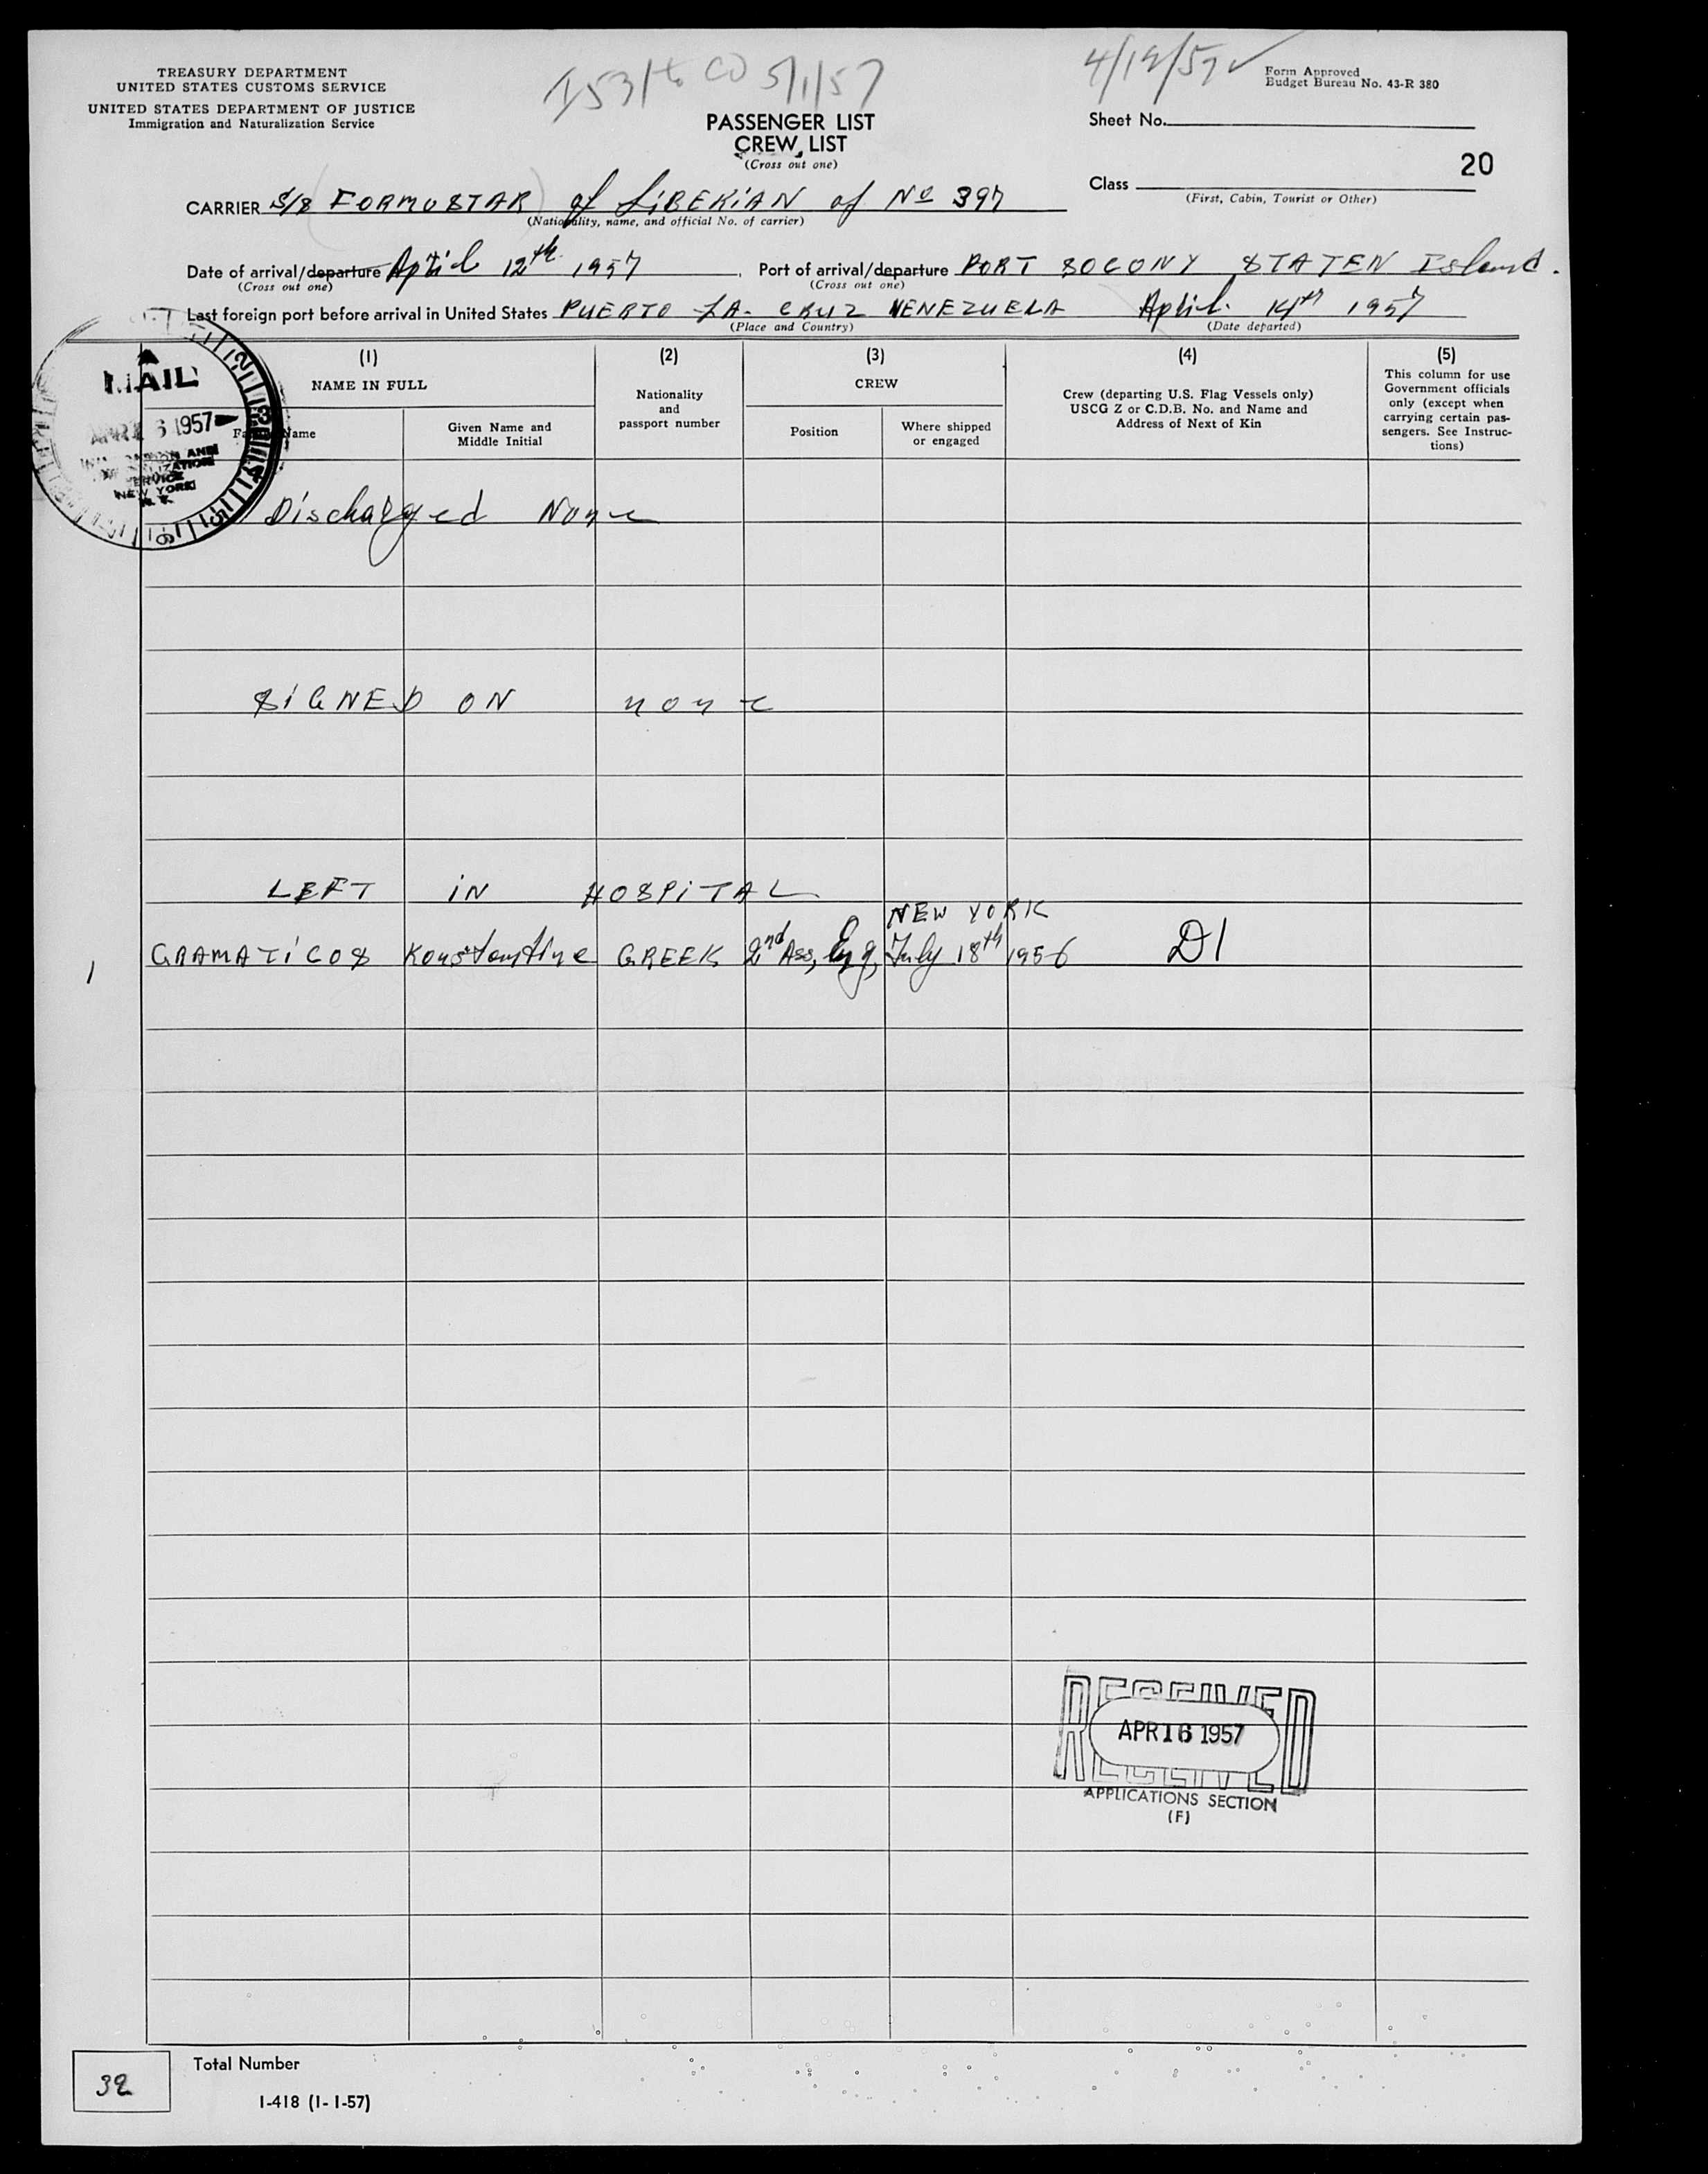 TREASURY DEPARTMENT
UNITED STATES CUSTOMS SERVICE
UNITED STATES DEPARTMENT OF JUSTICE
Immigration and Naturalization Service
CO 5/1/57
Form Approved
Budget Bureau No. 43-R 380
PASSENGER LIST
CREW LIST
(Cross out one)
Sheet No.
20
Class
(First, Cabin, Tourist or Other)
CARRIER S/S FORMOSTAR of LiBERiAN of No 397
(Nationality, name, and official No. of carrier)
Date of arrival/departure April 12th 1957. Port of arrival/departure PORT SOCONY STATEN Island.
(Cross out one) (Cross out one)
Last foreign port before arrival in United States PUERTO LA- CRUZ VENEZUELA April 14th 1957
(Place and Country) (Date departed)
MAIL
APR 16 1957
SERVICE
NEW YORK
N. Y.
(1) (2) (3) (4) (5)
NAME IN FULL
Family Name
Given Name and Middle Initial
Nationality and passport number
CREW
Position
Where shipped or engaged
Crew (departing U.S. Flag Vessels only)
USCG Z or C.D.B. No. and Name and
Address of Next of Kin
This column for use
Government officials
only (except when
carrying certain pas-
sengers. See Instruc-
tions)
Discharged None
SiGNED ON none
LEFT iN HOSPiTAL
NEW YORK
1 GRAMATiCOS Konstantine GREEK 2nd Ass, Eng, July 18th 1956 D1
RECEIVED
APR 16 1957
APPLICATIONS SECTION
(F)
32
Total Number
I-418 (1-1-57)